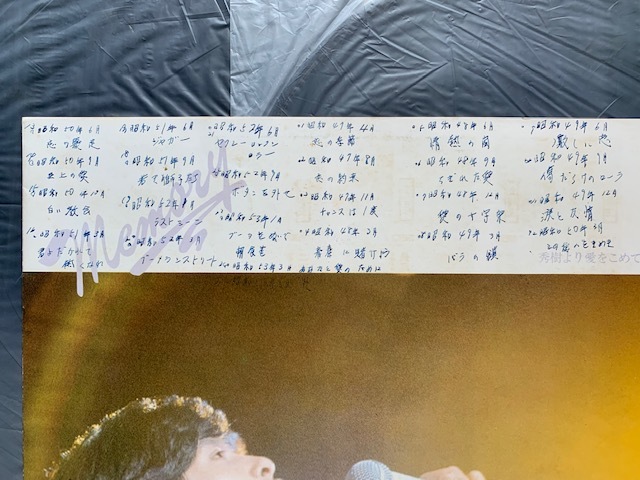 昭和50年6月
恋の暴走
昭和50年9月
至上の愛
昭和50年12月
白い教会
昭和51年3月
君よ抱かれて
熱くなれ
昭和51年6月
ジャガー
51年9月
若き獅子たち
昭和52年1月
ラストシーン
昭和52年3月
ブーメランストリート
昭和52年6月
セクシーロックン
ローラー
昭和52年9月
ボタンを外せ
昭和53年1月
ブーツを脱いで
朝食を
24昭和53年3月 あなたと愛のために
昭和47年4月
恋の季節
47年8月
恋の約束
47年11月
チャンスは一度
昭和48年3月
青春に賭けよう
昭和48年6月
情熱の嵐
昭和48年9月
ちぎれた愛
昭和48年12月
愛の十字架
昭和49年3月
バラの鎖
昭和49年6月
激しい恋
昭和49年9月
傷だらけのローラ
昭和49年12月
涙と友情
昭和50年3月
この愛のときめき
Memory
秀樹より愛をこめて